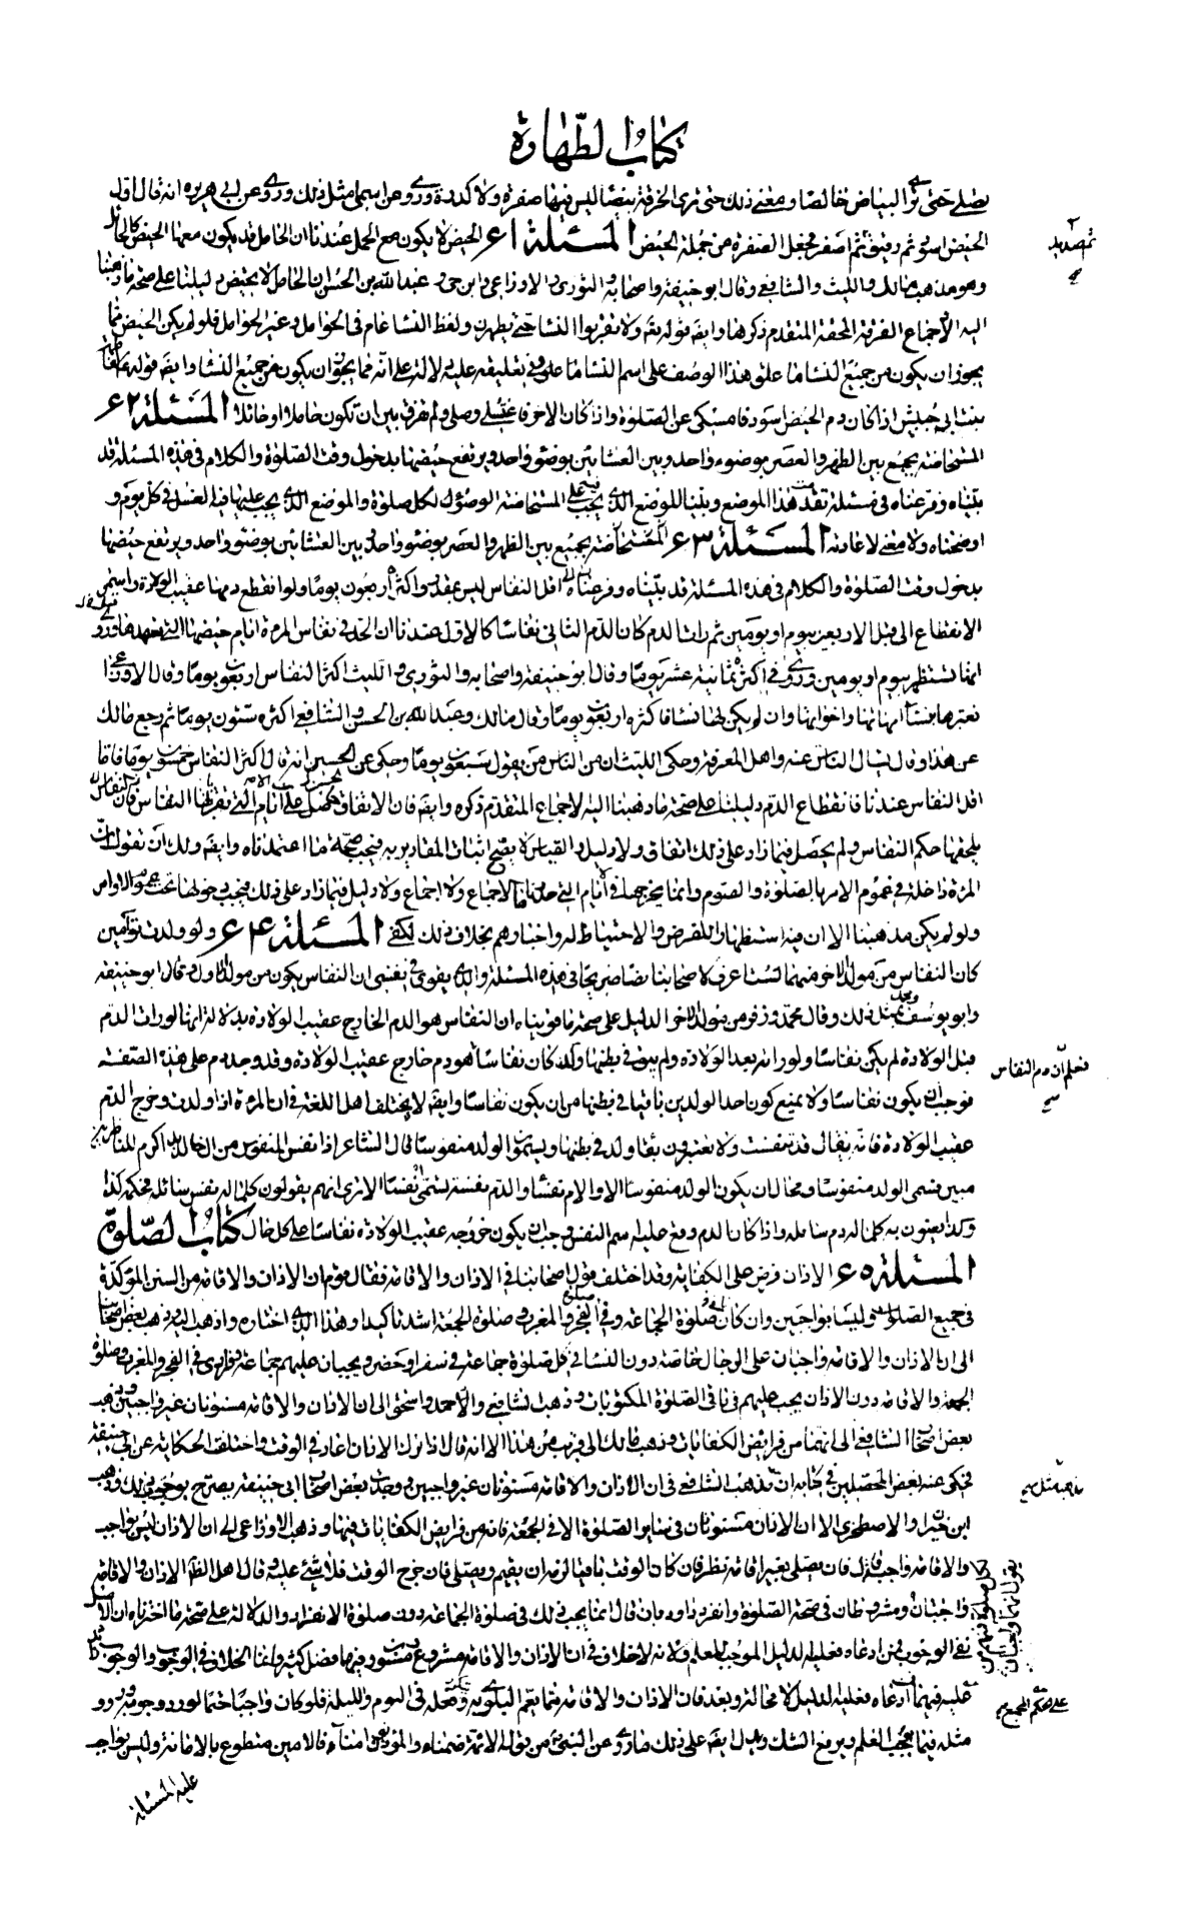 كتاب الطهارة
يصلي حتى ترى البياض خالصا ومعنى ذلك حتى ترى الخرقة بيضا ليس فيها صفرة ولا كدرة وروي عن اسمى مثل ذلك وروي عن ابي هريره انه قال اول
الحيض اسود ثم رقيق ثم اصفر فجعل الصفرة من جملة الحيض المسئلة ٦١ الحيض لا يكون مع الحمل عندنا ان الحامل قد يكون معها الحيض كالحائل
وهو مذهب مالك والليث والشافعي وقال ابو حنيفة واصحابه والثوري والاوزاعي وابن حي وعبد الله بن الحسن ان الحامل لا يحيض دليلنا على صحة ما ذهبنا
اليه الاجماع الفرقة المحقة المتقدم ذكرها وايضا قوله تع ولا تقربوا النسا حتى يطهرن ولفظ النسا عام في الحوامل وغير الحوامل فلو لم يكن الحيض مما
يجوز ان يكون من جميع النسا ما علق هذا الوصف على اسم النسا ما علق وفي تعليقه عليه دلالة على انه مما يجوز ان يكون من جميع النسا وايضا قوله ع لفاطمة
بنت ابي حبيش اذا كان دم الحيض اسود فامسكي عن الصلوة واذا كان الاخر فاغتسلي وصلي ولم يفرق بين ان تكون حاملا او حائلا المسئلة ٦٢
المستحاضة يجمع بين الظهر والعصر بوضوء واحد وبين العشائين بوضوء واحد ويرتفع حيضها بدخول وقت الصلوة والكلام في هذه المسئلة قد
بيناه وفرعناه في مسئلة تقدمت هذا الموضع وبينا الموضع الذي يجب فيه على المستحاضة الوضوء لكل صلوة والموضع الذي يجب عليها فيه الغسل في كل يوم و
اوضحناه ولا معنى لاعادته المسئلة ٦٣ المستحاضة يجمع بين الظهر والعصر بوضوء واحد وبين العشائين بوضوء واحد ويرتفع حيضها
بدخول وقت الصلوة والكلام في هذه المسئلة قد بيناه وفرعناه اقل النفاس ليس بمقدر واكثره اربعون يوما ولو انقطع دمها عقيب الولادة واستمر
الانقطاع الى قبل الاربعين بيوم او يومين ثم رات الدم كان الدم الثاني نفاسا كالاول عندنا ان الحد في نفاس المرءة ايام حيضها التي تعهدها وروي
انها تستظهر بيوم او يومين وروي في اكثره ثمانية عشر يوما وقال ابو حنيفة واصحابه والثوري والليث اكثر النفاس اربعون يوما وقال الاوزاعي
نعتبرها بنسا امهاتها واخواتها وان لم يكن لها نسا فاكثره اربعون يوما وقال مالك وعبد الله بن الحسن والشافعي اكثره ستون يوما ثم رجع مالك
عن هذا وقال يسال الناس عنه واهل المعرفة وحكى الليث ان من الناس من يقول سبعون يوما وحكي عن الحسن انه قال اكثر النفاس خمسون يوما فاما
اقل النفاس عندنا فانقطاع الدم دليلنا على صحة ما ذهبنا اليه الاجماع المتقدم ذكره وايضا فان الاتفاق حصل على الايام التي نقر بها النفاس فان النفاس
يلحقها حكم النفاس ولم يحصل فيما زاد على ذلك اتفاق ولا دليل والقياس لا يصح اثبات المقادير به فيجب صحة ما اعتمدناه وايضا ولك ان تقول ان
المرءة داخلة في عموم الامر بالصلوة والصوم وانما يخرجها في الايام التي حددناها الاجماع ولا اجماع ولا دليل فيما زاد على ذلك فيجب دخولها تحت عموم الاوامر
ولو لم يكن مذهبنا الا ان فيه استظهارا للفرض والاحتياط له واخبارهم بخلاف ذلك لكفى المسئلة ٦٤ ولو ولدت توأمين
كان النفاس من مولد الاخر منهما لست اعرف لاصحابنا نصا صريحا في هذه المسئلة والذي يقوى في نفسي ان النفاس يكون من مولد الاول وقال ابو حنيفة
وابو يوسف بمثل ذلك وقال محمد وزفر من مولد الاخر الدليل على صحة ما قويناه ان النفاس هو الدم الخارج عقيب الولادة بدلالة انها لو رات الدم
قبل الولادة لم يكن نفاسا ولو راته بعد الولادة ولم يبق في بطنها ولد كان نفاسا
فعلم ان دم النفاس
هو دم خارج عقيب الولادة وقد وجد دم على هذه الصفة
فوجب ان يكون نفاسا ولا يمنع كون احد الولدين باقيا في بطنها من ان يكون نفاسا وايضا لا يختلف اهل اللغة في ان المرءة اذا ولدت وخرج الدم
عقيب الولادة فانه يقال قد نفست ولا يعتبرون بقا ولد في بطنها ويسمون الولد منفوسا قال الشاعر اذا نفس المنفوس من
مبين فسمى الولد منفوسا ومحال ان يكون الولد منفوسا الا والام نفسا والدم بنفسه يسمى نفسا الا ترى انهم يقولون كلما له نفس سائلة فحكمه كذا
وكذا يعنون به كلما له دم سائله واذا كان الدم وقع عليه اسم النفس وجب ان يكون خروجه عقيب الولادة نفاسا على كل حال كتاب الصلوة
المسئلة ٦٥ الاذان فرض على الكفاية وقد اختلف قول اصحابنا في الاذان والاقامة فقال قوم ان الاذان والاقامة من السنن المؤكدة
في جميع الصلوات وليسا بواجبين وان كان في صلوة الجماعة وفي الفجر والمغرب وصلوة الجمعة اشد تاكيدا وهذا الذي اختاره واذهب اليه وذهب بعض اصحابنا
الى ان الاذان والاقامة واجبان على الرجال خاصة دون النسا في كل صلوة جماعة في سفر او حضر ويجبان عليهم جماعة وفرادى في الفجر والمغرب وصلوة
الجمعة والاقامة دون الاذان يجب عليهم في باقي الصلوة المكتوبات وذهب الشافعي والاحمد واسحق الى ان الاذان والاقامة مسنونان غير واجبين وذهب
بعض اصحاب الشافعي الى انهما من فرايض الكفايات وذهب مالك الى قريب من هذا الا انه قال اذا ترك الاذان اعاد في الوقت واختلفت الحكاية عن ابي حنيفة
فحكى عنه بعض المحصلين في كتابه ان مذهب الشافعي في ان الاذان والاقامة مسنونان غير واجبين ووجدت بعض اصحاب ابي حنيفة يصرح بوجوب ذلك وذهب
ابن خيران والاصطخري الا ان الاذان مسنونان في ساير الصلوة الا في الجمعة فانه من فرايض الكفايات فيها وذهب الاوزاعي الى ان الاذان ليس بواجب
والاقامة واجبة قال فان صلى بغير اقامة نظر فان كان الوقت باقيا لزمه ان يقيم ويصلي فان خرج الوقت فلا شيئ عليه وقال اهل الظاهر الاذان والاقامة
واجبان ومشروطان في صحة الصلوة وانفرد داود بان قال انما يجب ذلك في صلوة الجماعة دون صلوة الانفراد والدلالة على صحة ما اخترناه ان الاصل
نفي الوجوب فمن ادعاه فعليه الدليل الموجب للعلم ولانه لا خلاف في ان الاذان والاقامة مشروع مسنون وفيهما فضل كثير وانما الخلاف في الوجوب والوجوب
عليه فيهما فمن ادعاه فعليه الدليل لا محالة وبعد فان الاذان والاقامة مما يعم البلوى به ومحله في اليوم والليلة فلو كان واجبا حتما لورد وجوبه ورود
مثله فيما يوجب العلم ويرفع الشك ويدل ايضا على ذلك ما روي عن النبي ص من قوله الائمة ضمناء والمؤذنون امناء فالامين متطوع بالامانة وليس بواجب
عليه المسئلة